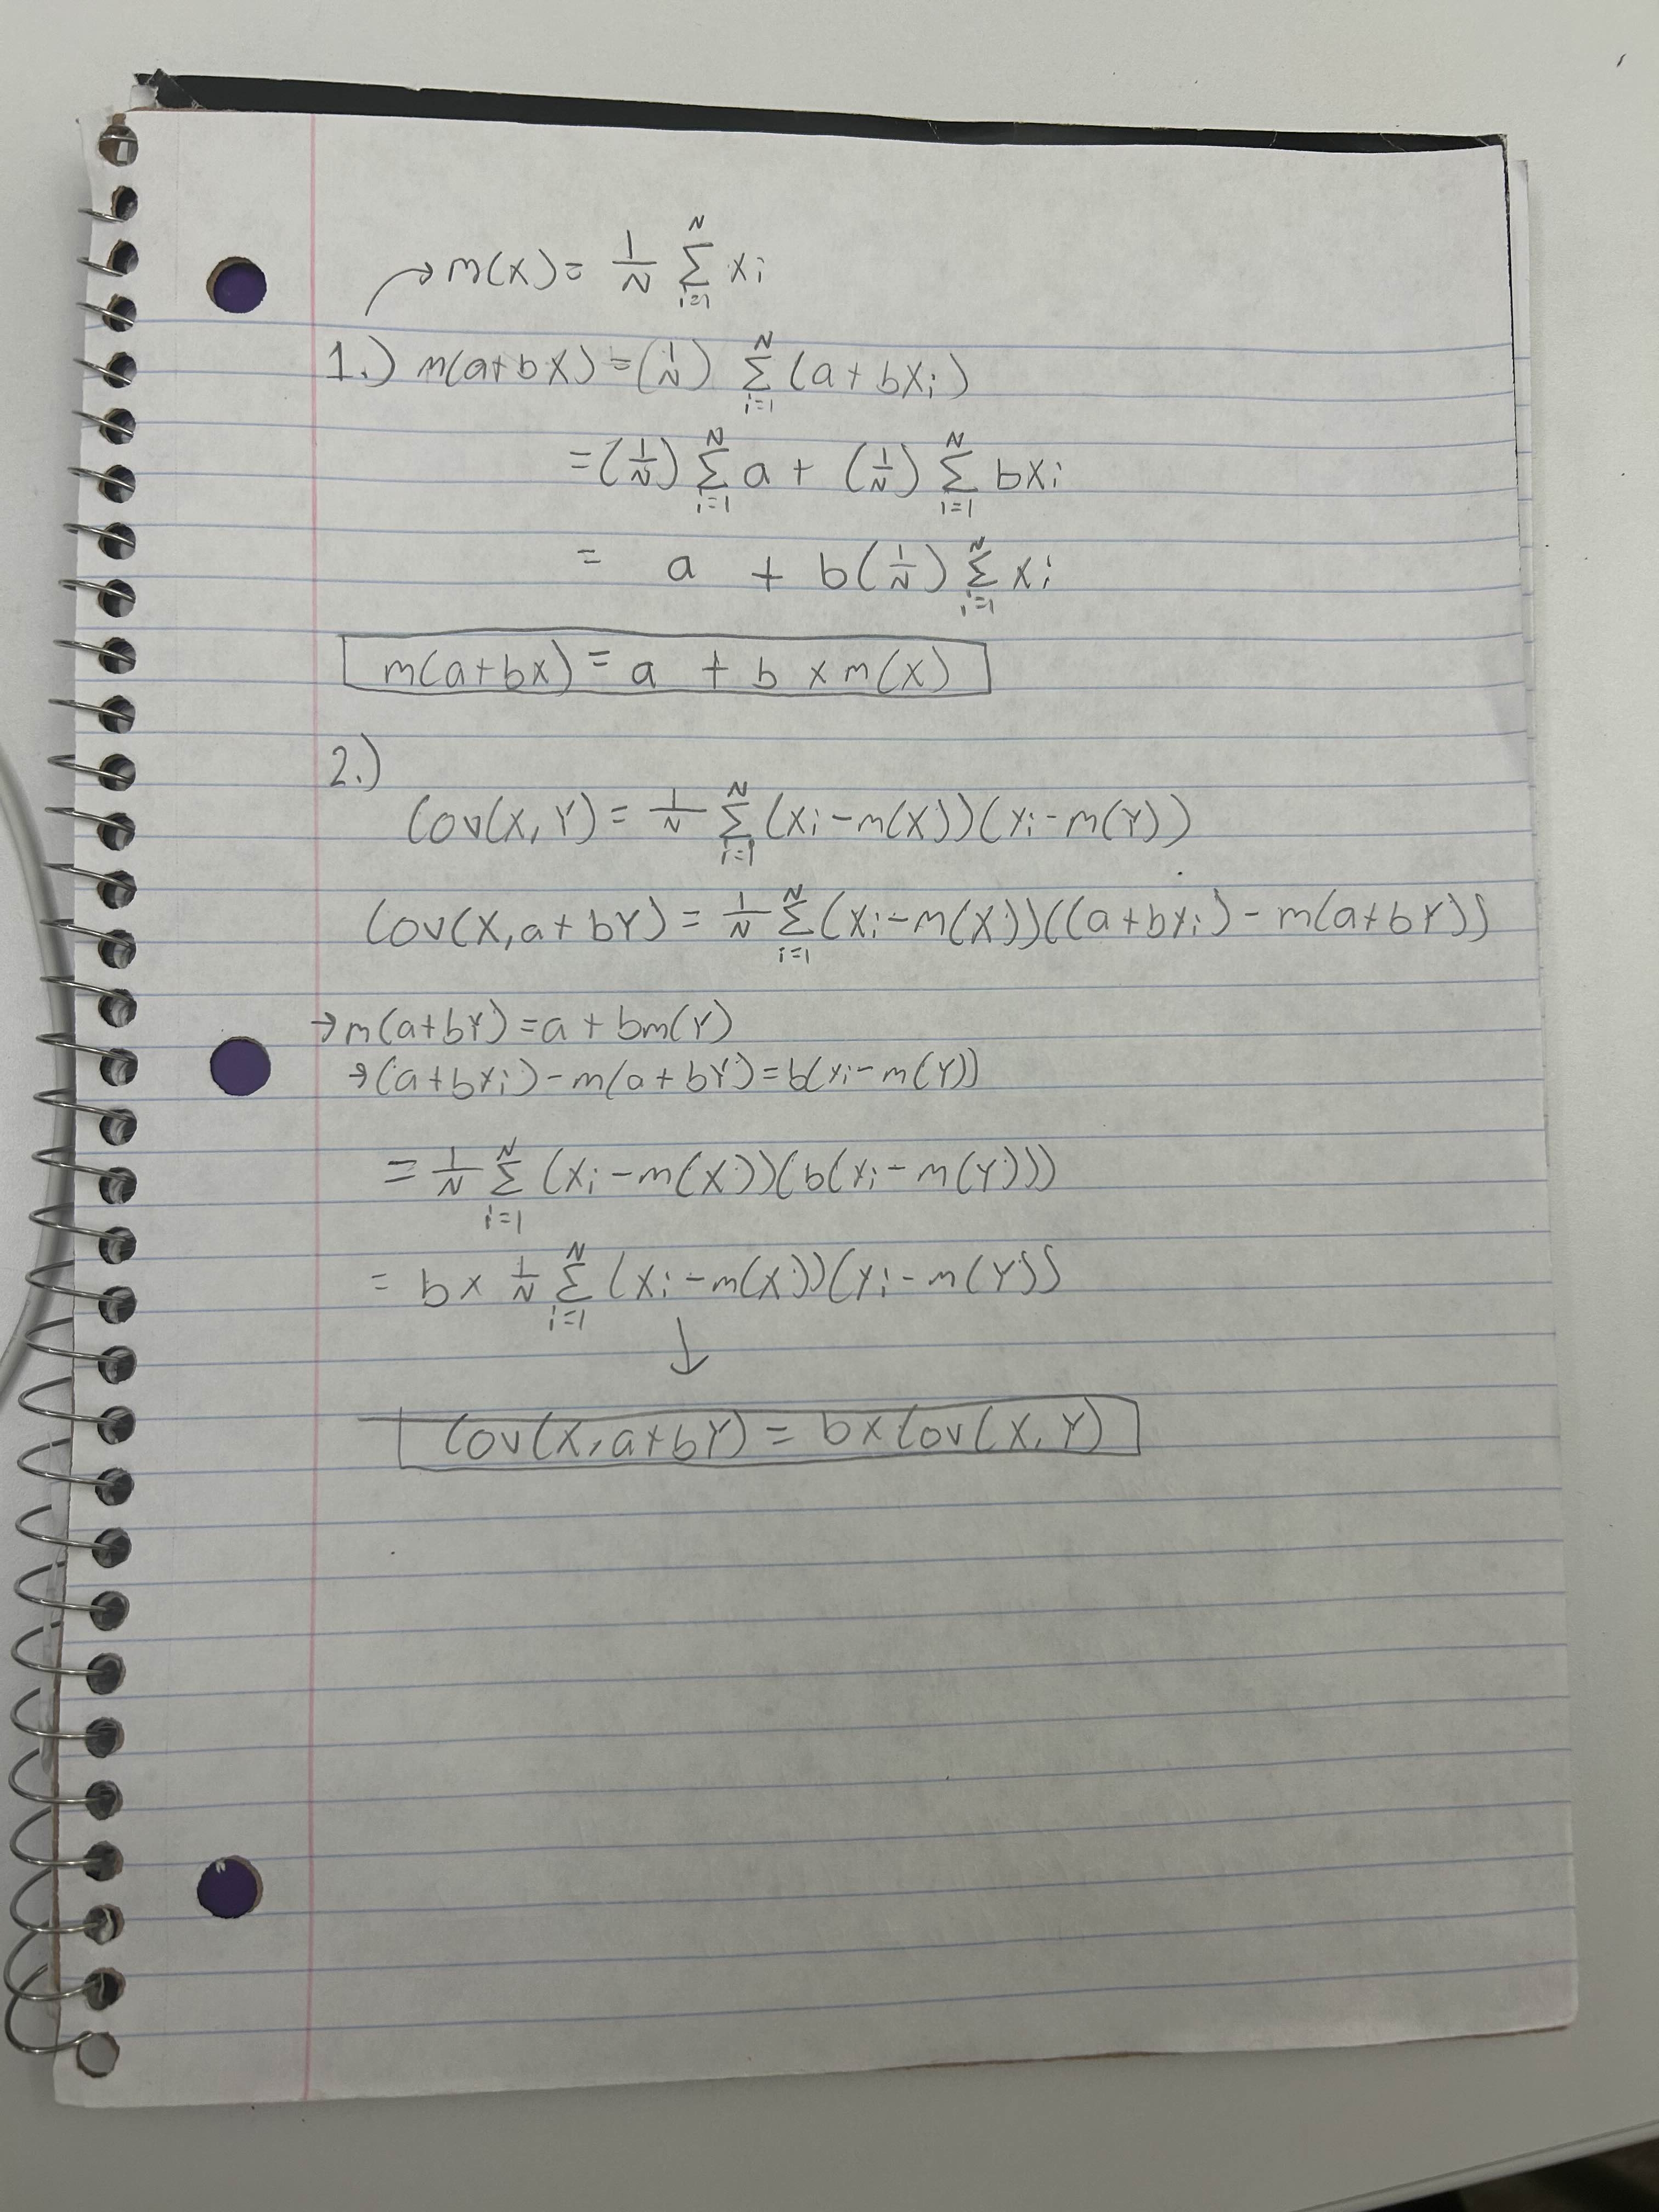 → m(X) = 1/N Σ_{i=1}^{N} xi
1.) m(a+bX) = (1/N) Σ_{i=1}^{N} (a+bxi)
= (1/N) Σ_{i=1}^{N} a + (1/N) Σ_{i=1}^{N} bxi
= a + b(1/N) Σ_{i=1}^{N} xi
m(a+bX) = a + b × m(X)
2.)
Cov(X, Y) = 1/N Σ_{i=1}^{N} (xi - m(X))(yi - m(Y))
Cov(X, a+bY) = 1/N Σ_{i=1}^{N} (xi - m(X))((a+byi) - m(a+bY))
→ m(a+bY) = a + bm(Y)
→ (a+byi) - m(a+bY) = b(yi - m(Y))
= 1/N Σ_{i=1}^{N} (xi - m(X))(b(yi - m(Y)))
= b × 1/N Σ_{i=1}^{N} (xi - m(X))(yi - m(Y))
↓
Cov(X, a+bY) = b × Cov(X, Y)